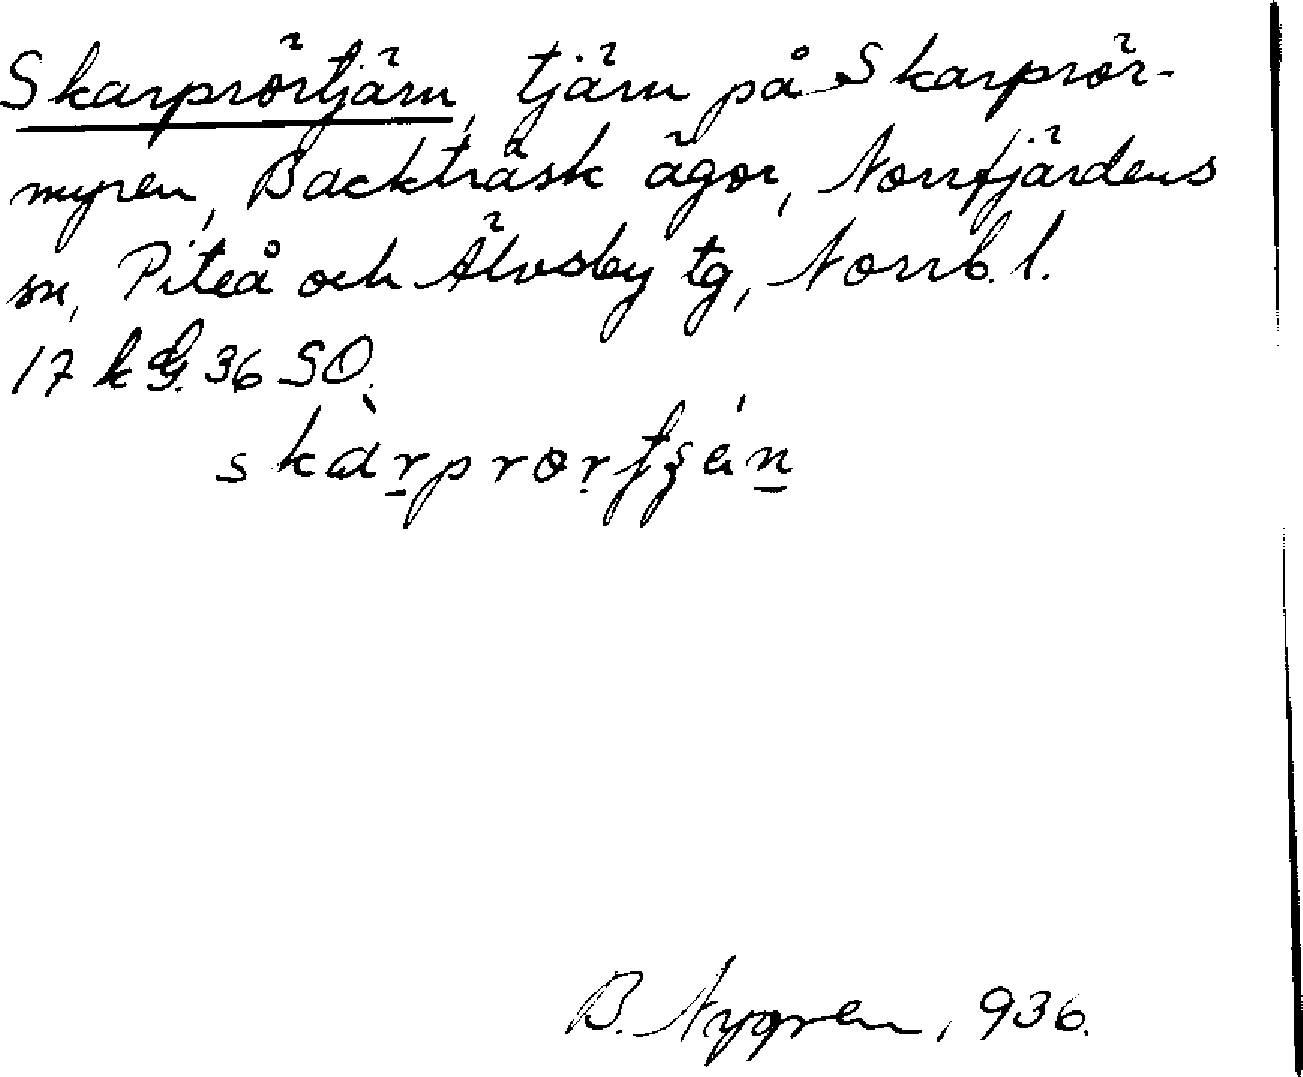 Skarprörtjärn, tjärn på Skarprör-
myren, Backträsk ägor, Norrfjärdens
sn, Piteå och Älvsby tg, Norrb. l.
17 k 36 SO.
B. Nygren, 936.